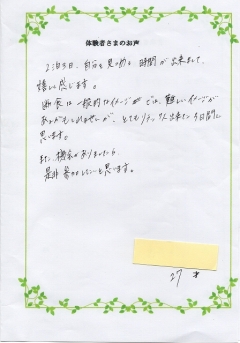 体験者さまのお声
2泊3日、自分を見つめる時間が出来まして、
嬉しく感じます。
断食は一般的なイメージでは、難しいイメージが
あるかもしれませんが、とてもリラックス出来た3日間に
思います。
また、機会がありましたら
是非参加したいと思います。
27才